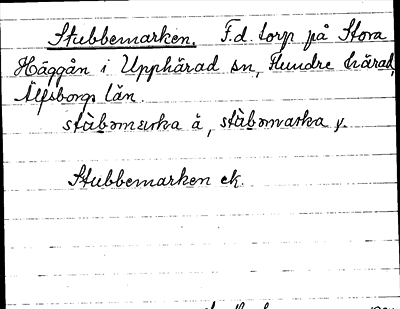 Stubbemarken. F.d. torp på Stora
Häggån i Upphärad sn, Flundre härad,
Älfsborgs län.
stùbəmarka ä, stùbəmarka y.
Stubbemarken ek.